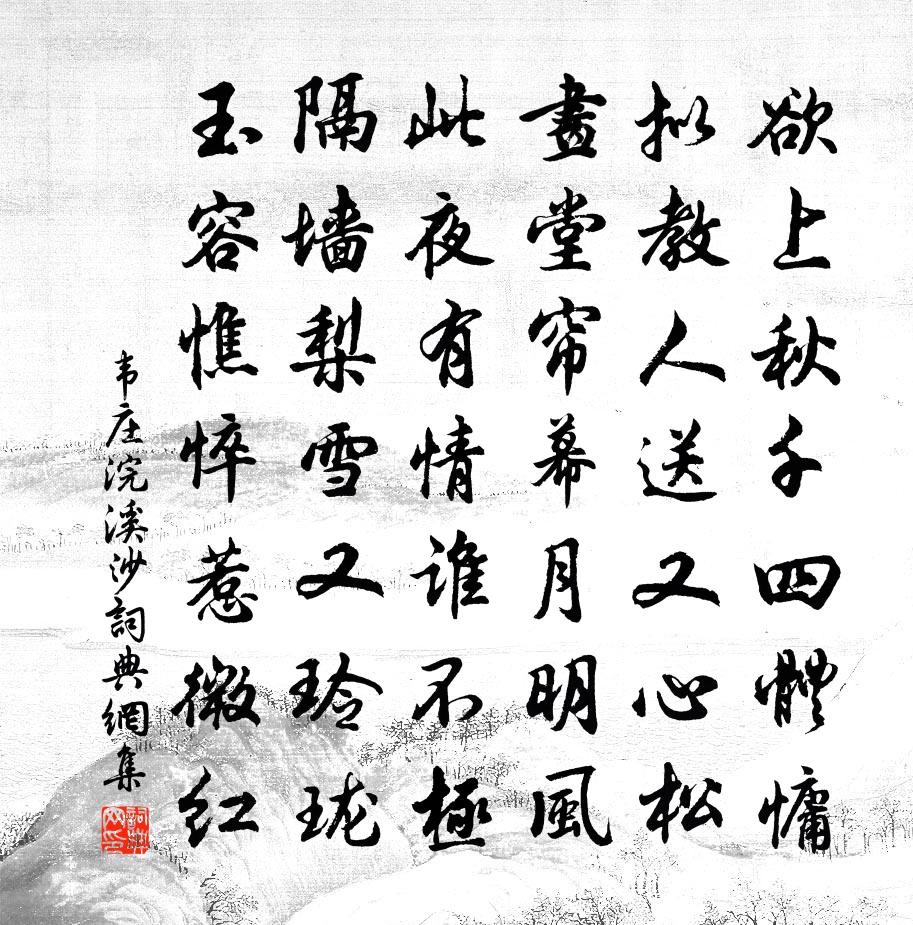 欲上秋千四體慵
拟教人送又心松
畫堂帘幕月明風
此夜有情誰不極
隔墙梨雪又玲珑
玉容憔悴惹微红
韦庄浣溪沙詞典網集